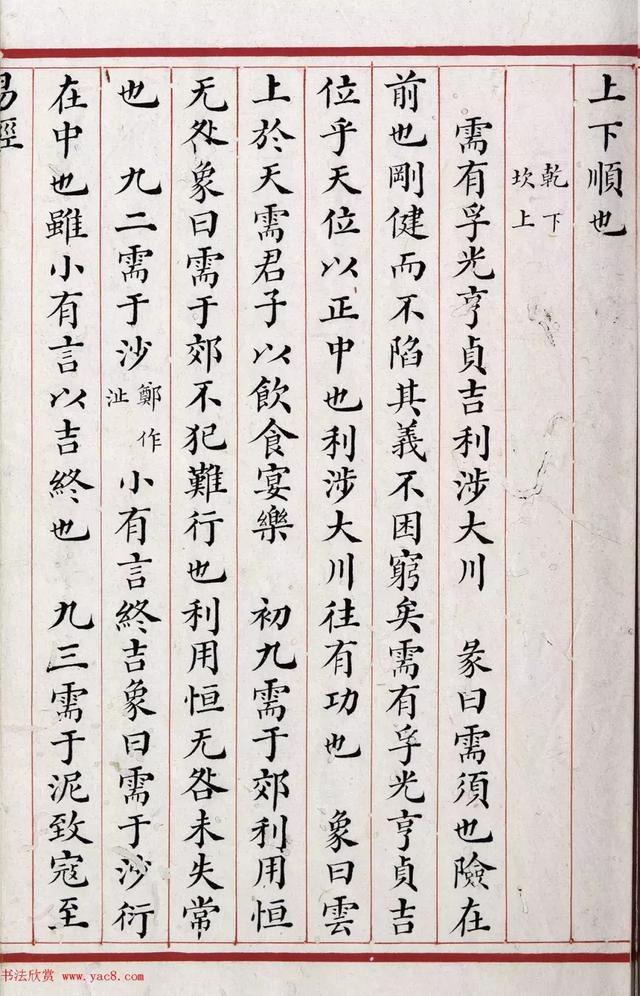 上下順也
乾下
坎上
需有孚光亨貞吉利涉大川 彖曰需須也險在
前也剛健而不陷其義不困窮矣需有孚光亨貞吉
位乎天位以正中也利涉大川往有功也 象曰雲
上於天需君子以飲食宴樂 初九需于郊利用恒
无咎象曰需于郊不犯難行也利用恒无咎未失常
也 九二需于沙鄭作沚小有言終吉象曰需于沙衍
在中也雖小有言以吉終也 九三需于泥致寇至
易經
书法欣赏 www.yac8.com